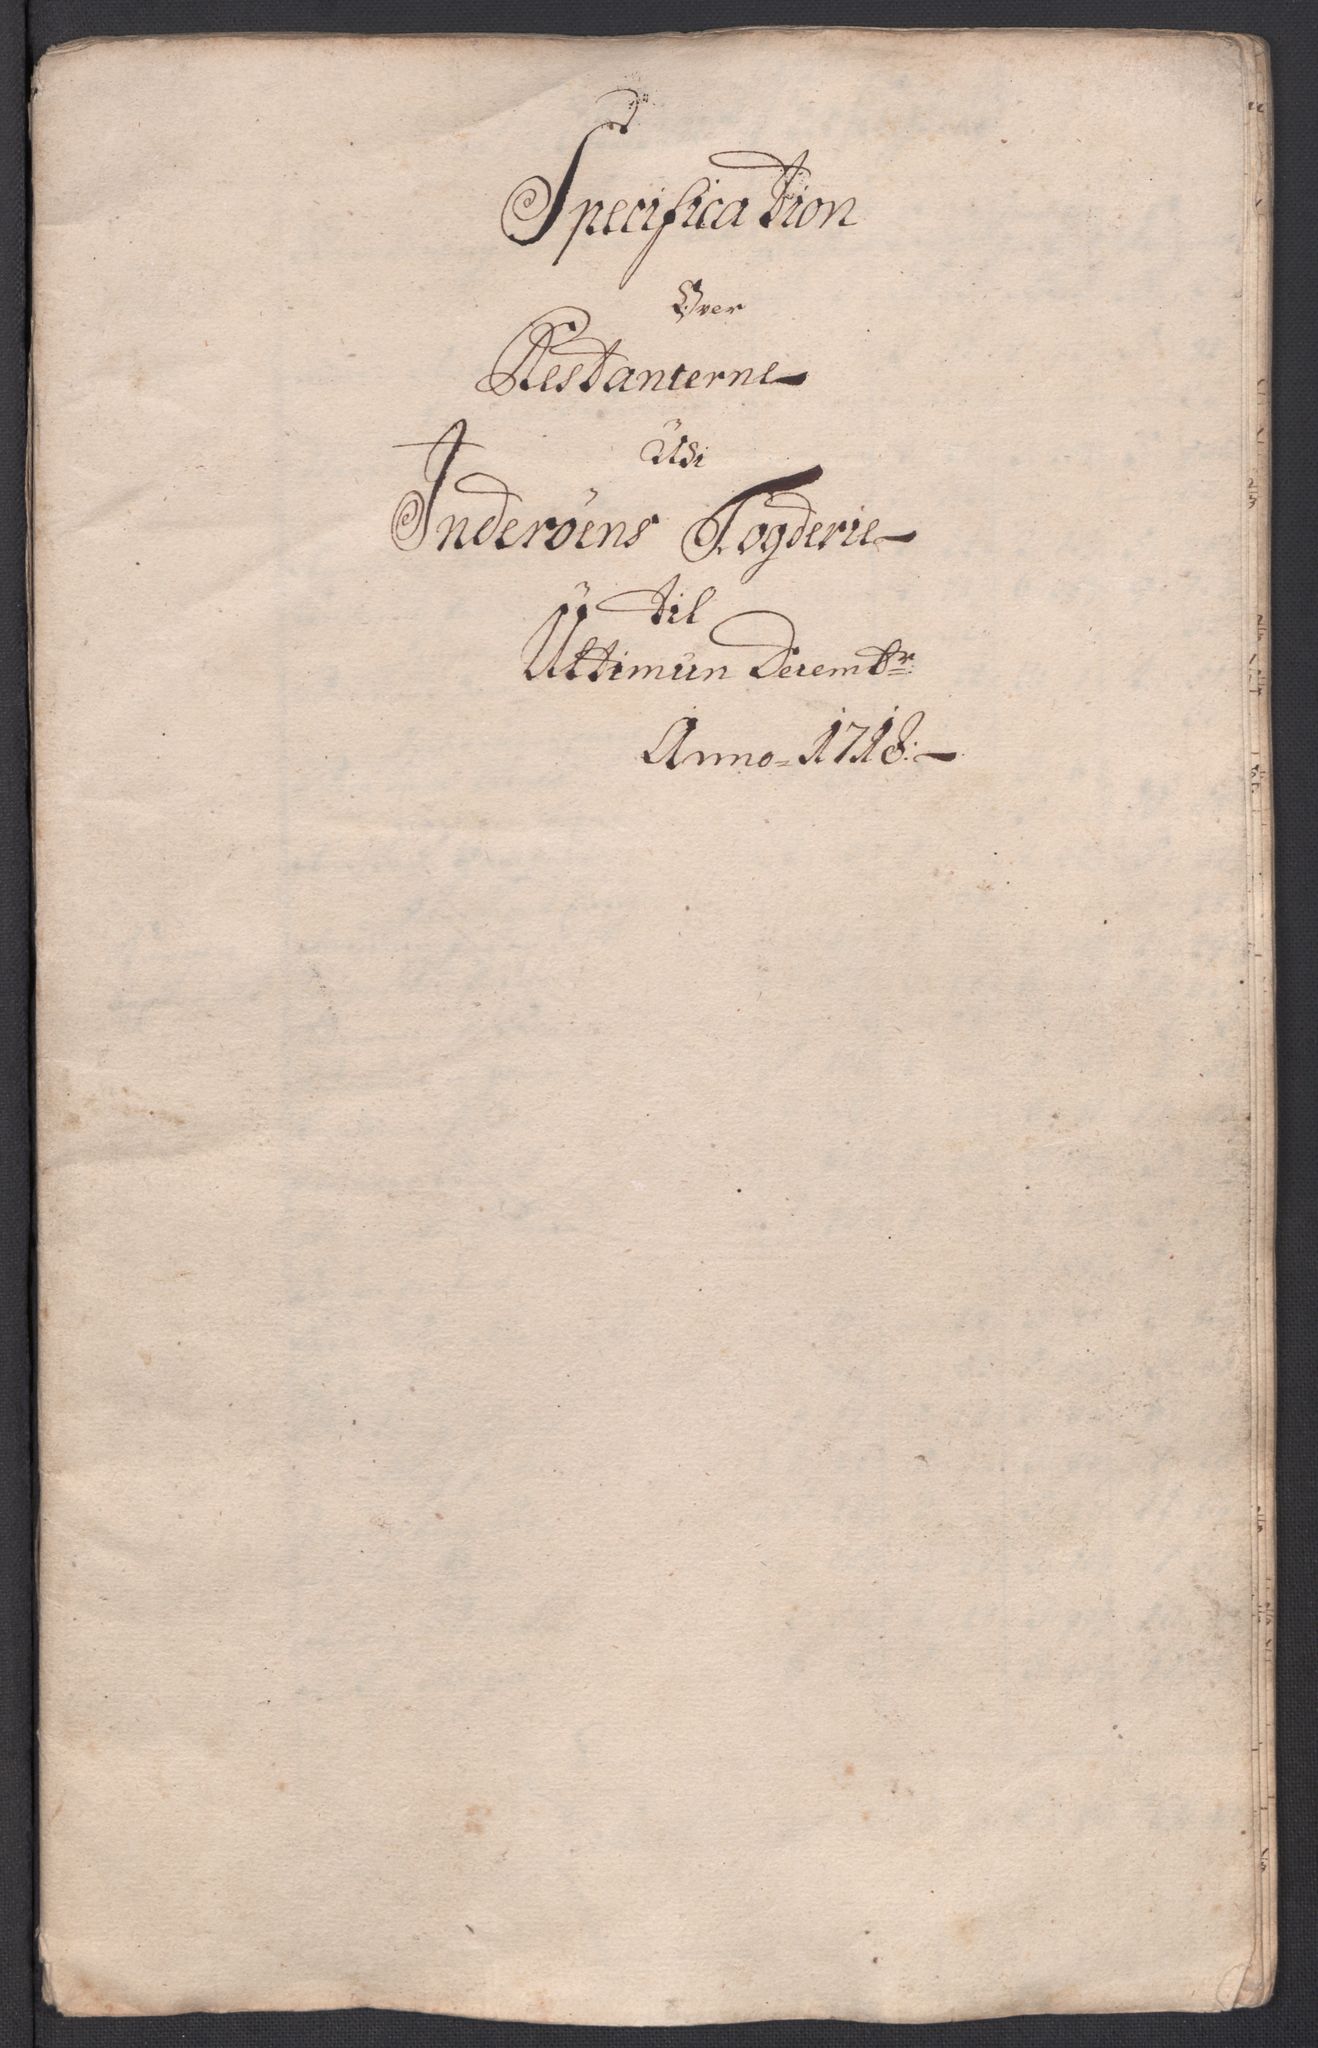 Specification
Over
Restanterne
Udi
Inderöens Fogderie
til
Ultimün Decembr
Anno 1718: